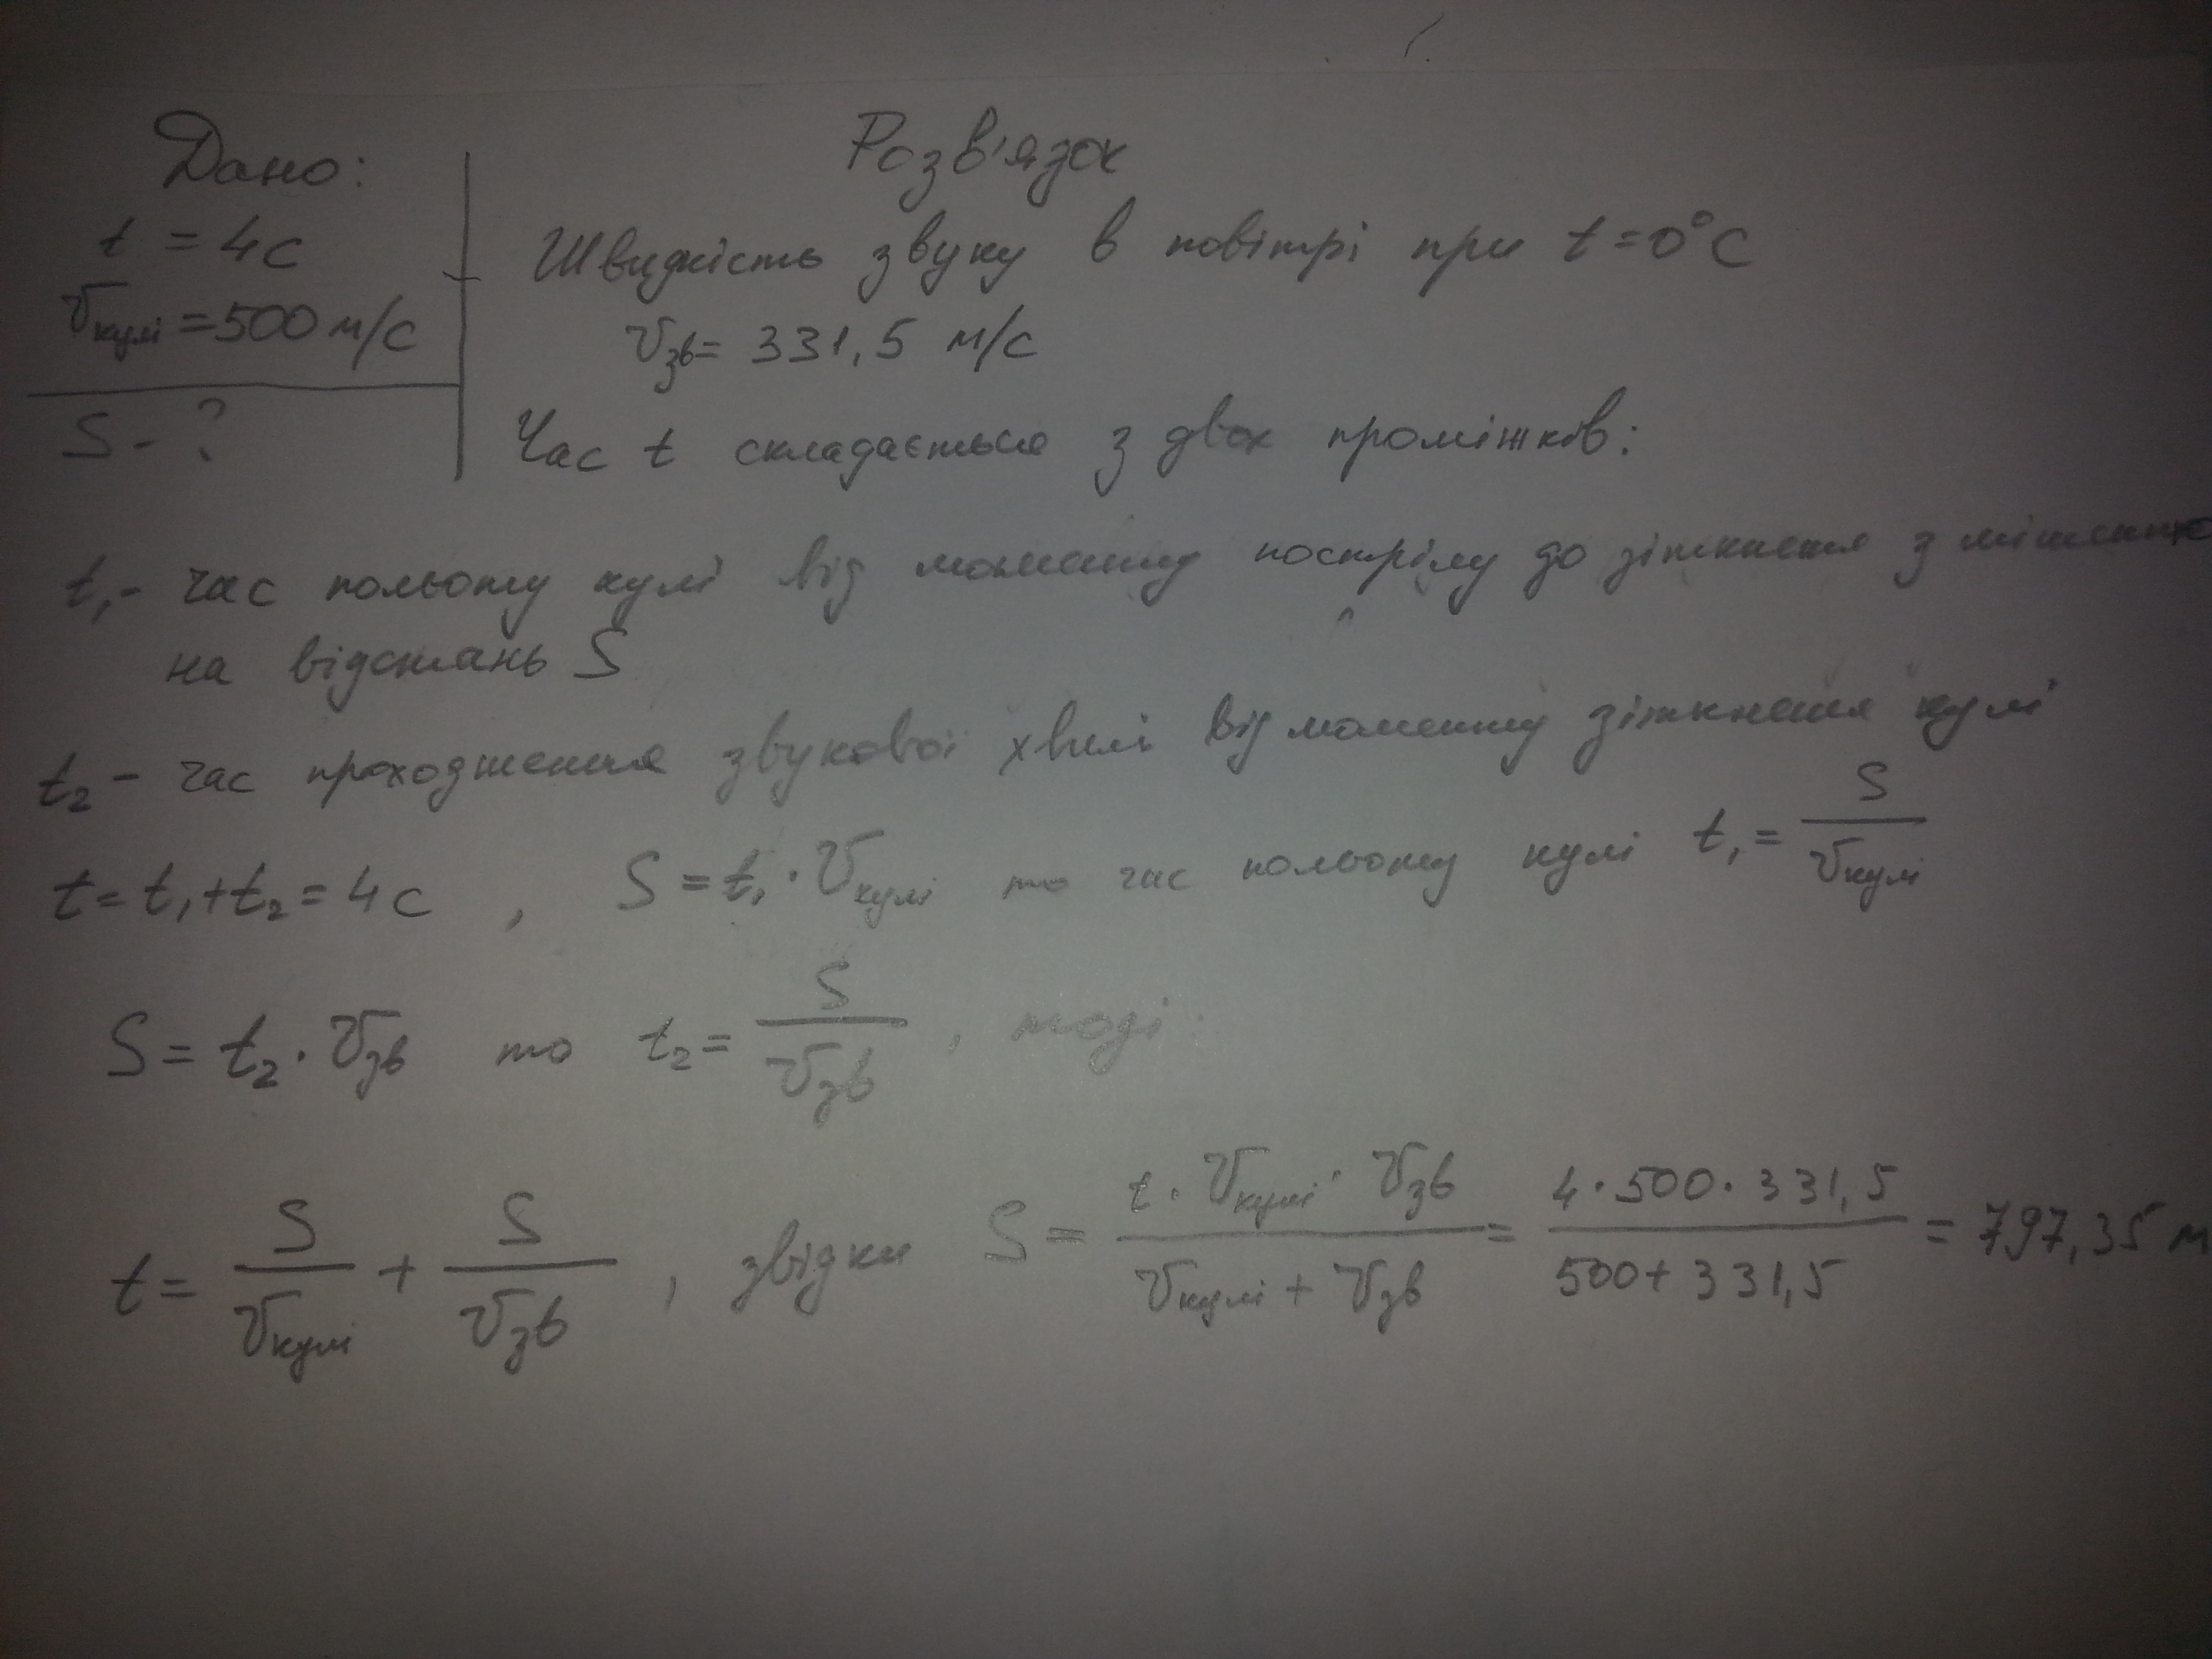 Дано:
t = 4 с
Vкулі = 500 м/с
S - ?
Розв'язок
Швидкість звуку в повітрі при t = 0°C
Vзв = 331,5 м/с
Час t складається з двох проміжків:
t₁ - час польоту кулі від моменту пострілу до зіткнення з мішенню
на відстань S
t₂ - час проходження звукової хвилі від моменту зіткнення кулі
t = t₁ + t₂ = 4 с , S = t₁ · Vкулі то час польоту кулі t₁ = S / Vкулі
S = t₂ · Vзв то t₂ = S / Vзв , тоді:
t = S / Vкулі + S / Vзв , звідки S = t · Vкулі · Vзв / Vкулі + Vзв = 4 · 500 · 331,5 / 500 + 331,5 = 797,35 м